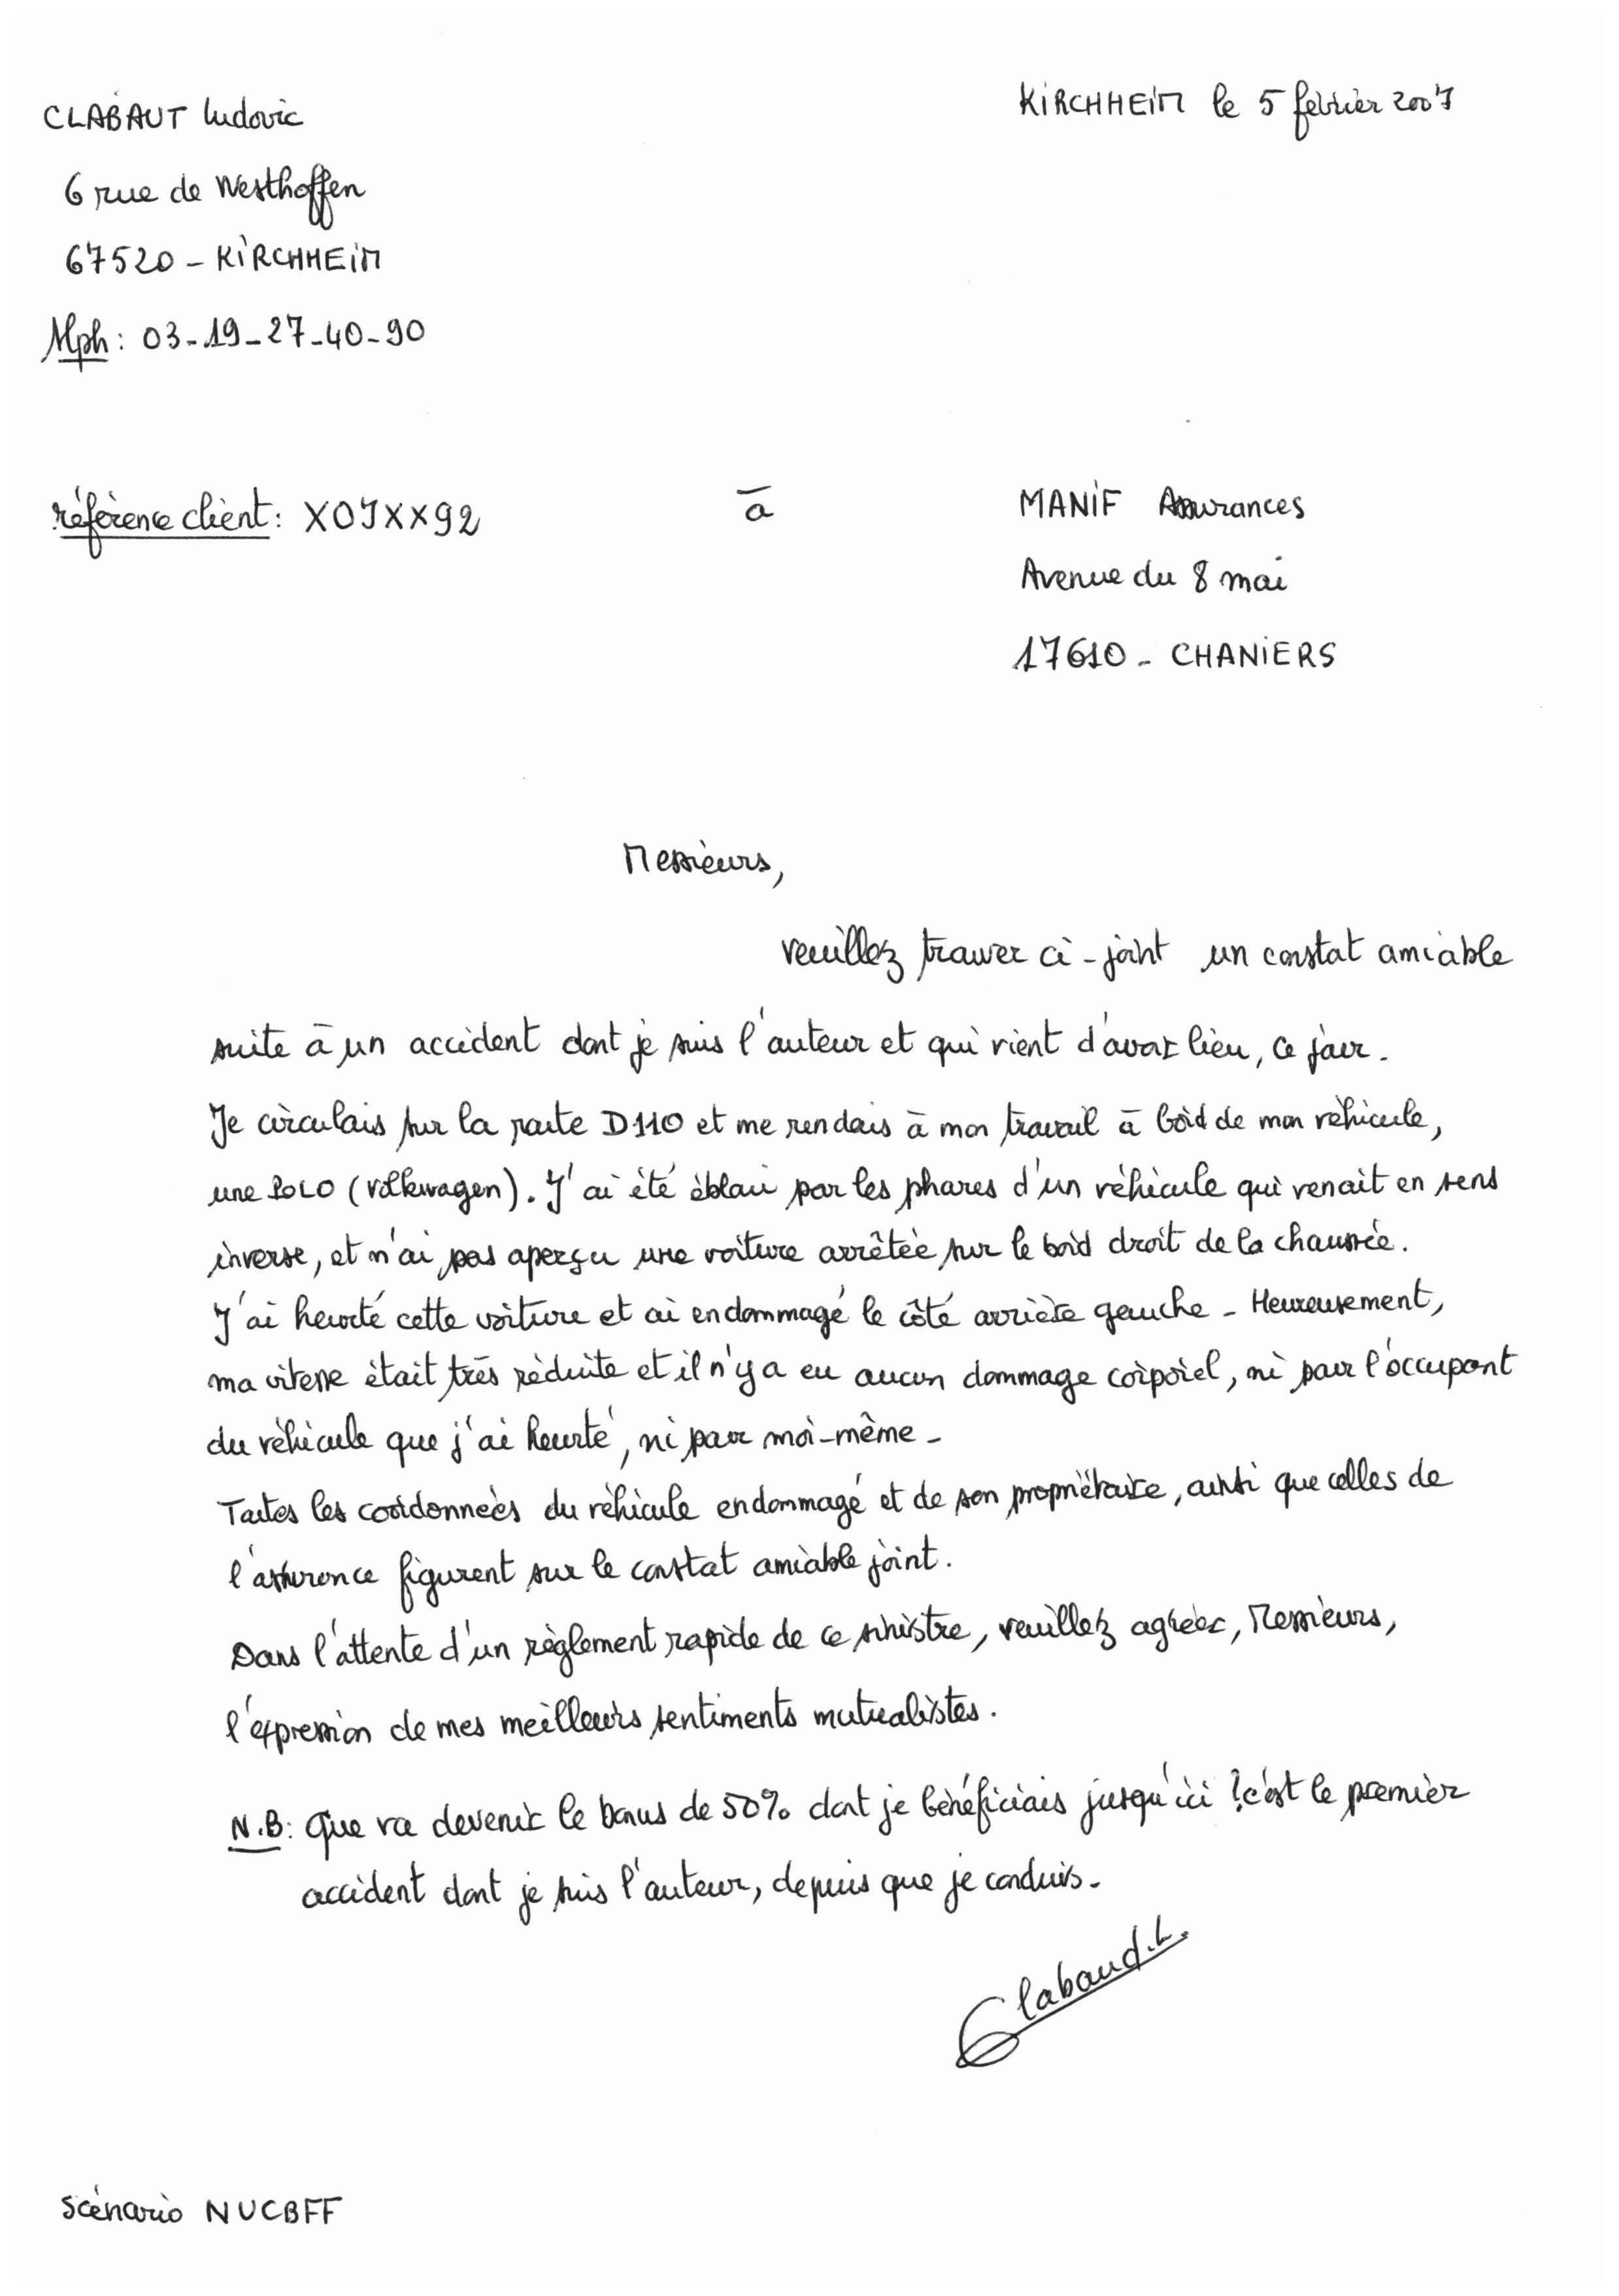 CLABAUT ludovic
KIRCHHEIM le 5 février 2007
6 rue de Westhoffen
67520 - KIRCHHEIM
Tlph : 03-19-27-40-90
référence client : XOJXX92
à
MANIF Assurances
Avenue du 8 mai
17610 - CHANIERS
Messieurs,
veuillez trouver ci-joint un constat amiable
suite à un accident dont je suis l'auteur et qui vient d'avoir lieu, ce jour.
Je circulais sur la route D110 et me rendais à mon travail à bord de mon véhicule,
une POLO (volkwagen). J'ai été ébloui par les phares d'un véhicule qui venait en sens
inverse, et n'ai pas aperçu une voiture arrêtée sur le bord droit de la chaussée.
J'ai heurté cette voiture et ai endommagé le côté arrière gauche - Heureusement,
ma vitesse était très réduite et il n'y a eu aucun dommage corporel, ni pour l'occupant
du véhicule que j'ai heurté, ni pour moi-même -
Toutes les coordonnées du véhicule endommagé et de son propriétaire, ainsi que celles de
l'assurance figurent sur le constat amiable joint.
Dans l'attente d'un règlement rapide de ce sinistre, veuillez agréer, Messieurs,
l'expression de mes meilleurs sentiments mutualistes.
N.B : Que va devenir le bonus de 50% dont je bénéficiais jusqu'ici ? c'est le premier
accident dont je suis l'auteur, depuis que je conduis -
Clabaud.L.
Scénario NUCBFF